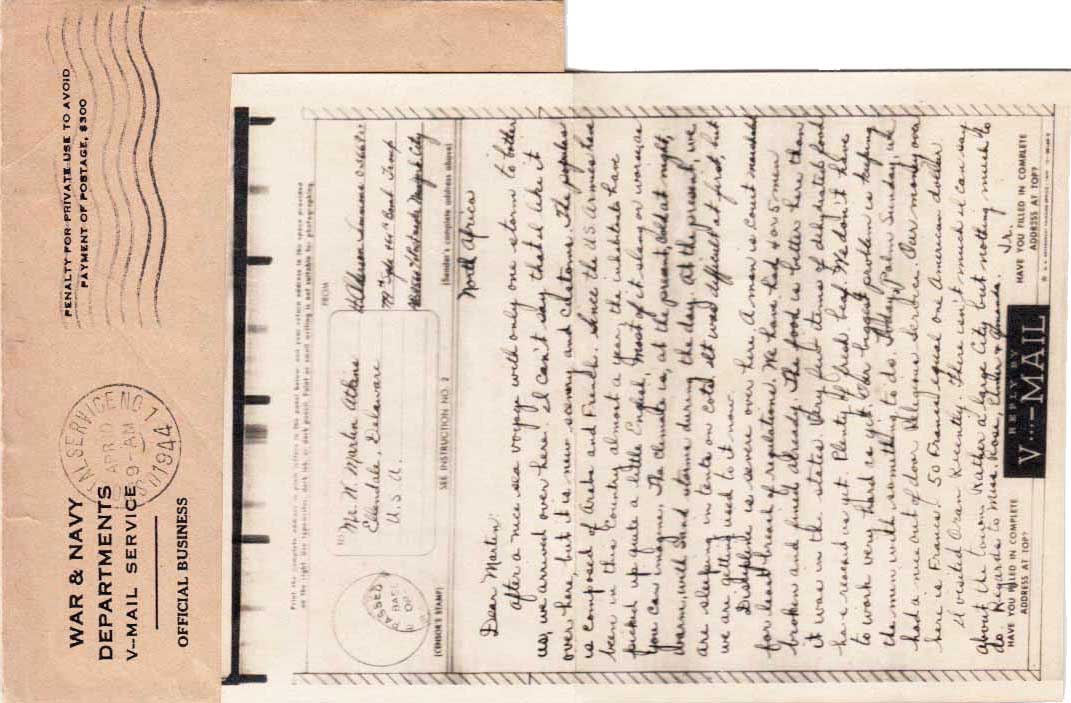 PENALTY FOR PRIVATE USE TO AVOID
PAYMENT OF POSTAGE, $300
WAR & NAVY
DEPARTMENTS
V-MAIL SERVICE
OFFICIAL BUSINESS
APR 10
9-AM
1944
Print the complete address in plain letters in the panel below, and your return address in the space provided
on the right. Use typewriter, dark ink, or dark pencil. Faint or small writing is not suitable for photographing.
TO
Mr. W. Martin Atkins
Ellendale, Delaware
U.S.A.
FROM
New York City
PASSED
BASE
(CENSOR'S STAMP)
SEE INSTRUCTION NO. 2
(Sender's complete address above)
North Africa
Dear Martin:
After a nice sea voyage with only one storm to bother
us, we arrived over here. I can't say that I like it
over here, but it is new scenery and customs. The peoples
is composed of Arabs and French. Since the U.S. Armies has
been in this country almost a year, the inhabitants have
picked up quite a little English, most of it slang or worse, as
you can imagine. The climate is, at the present, cold at night,
warm, with sand storms during the day. At the present, we
are sleeping in tents on cots. It was difficult at first, but
we are getting used to it now.
Disipline is severe over here. A man is court marshaled
for least breach of regulations. We have had 4 or 5 men
broken and fined already. The food is better here than
it was in the states. Very few items of dehydrated food
have reached us yet. Plenty of fresh beef. We don't have
to work very hard as yet. Our biggest problem is keeping
the men with something to do. Today, Palm Sunday, we
had a nice out of door Religous Service. Our money over
here is Francs. 50 Francs equal one American dollar.
I visited Oran recently. There isn't much I can say
about the town. Rather a large City, but nothing much to
do. Regards to Miss. Rosa, Elmer & Amanda. Jr.
HAVE YOU FILLED IN COMPLETE
ADDRESS AT TOP?
REPLY BY
V...-MAIL
HAVE YOU FILLED IN COMPLETE
ADDRESS AT TOP?